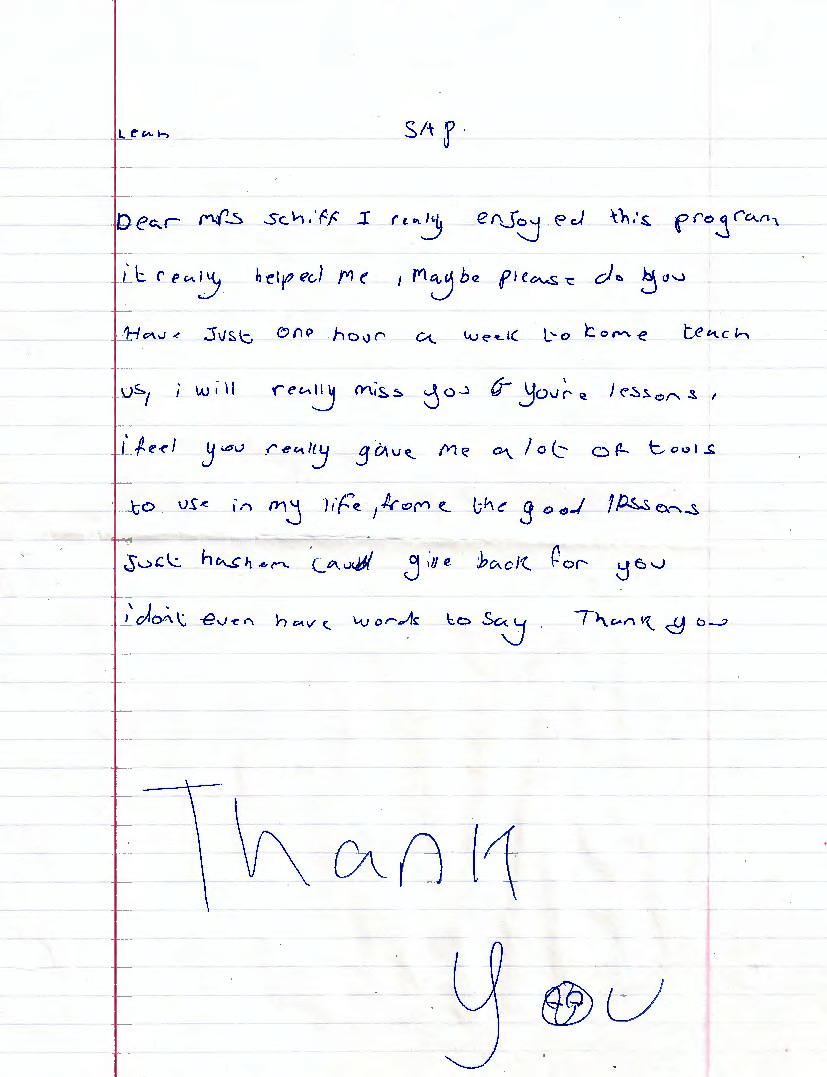 Leah SAP.
Dear mrs schiff I really enjoyed this program
it really helped me , Maybe please do you
Have Just one hour a week to come teach
us, i will really miss you & you're lessons,
i feel you really gave me a lot of tools
to use in my life, frome the good lessons
Just hashem could give back for you
i don't even have words to say. Thank you
Thank
you